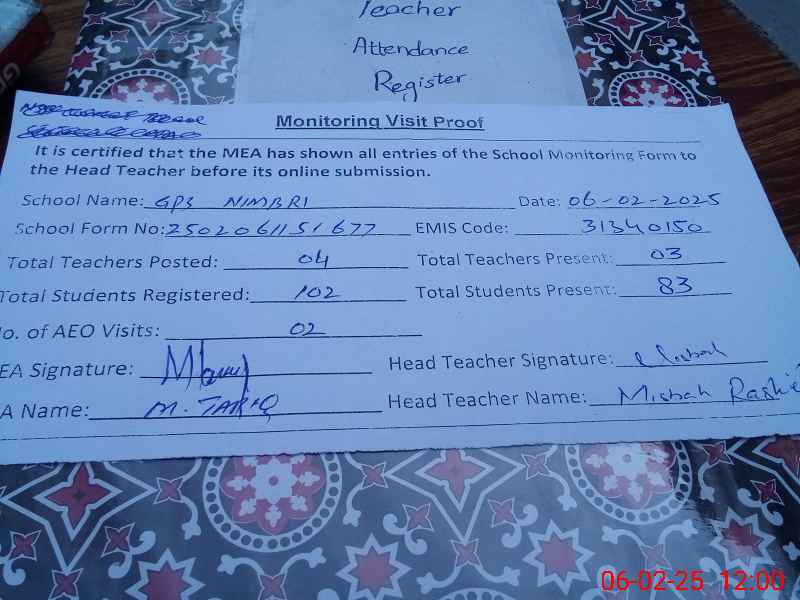 Teacher
Attendance
Register
Monitoring Visit Proof
It is certified that the MEA has shown all entries of the School Monitoring Form to
the Head Teacher before its online submission.
School Name: GPS NIMBRI Date: 06-02-2025
School Form No: 2502061151677 EMIS Code: 31340150
Total Teachers Posted: 04 Total Teachers Present: 03
Total Students Registered: 102 Total Students Present: 83
o. of AEO Visits: 02
EA Signature: Head Teacher Signature: Misbah
A Name: M. TARIQ Head Teacher Name: Misbah Rashi
06-02-25 12:00